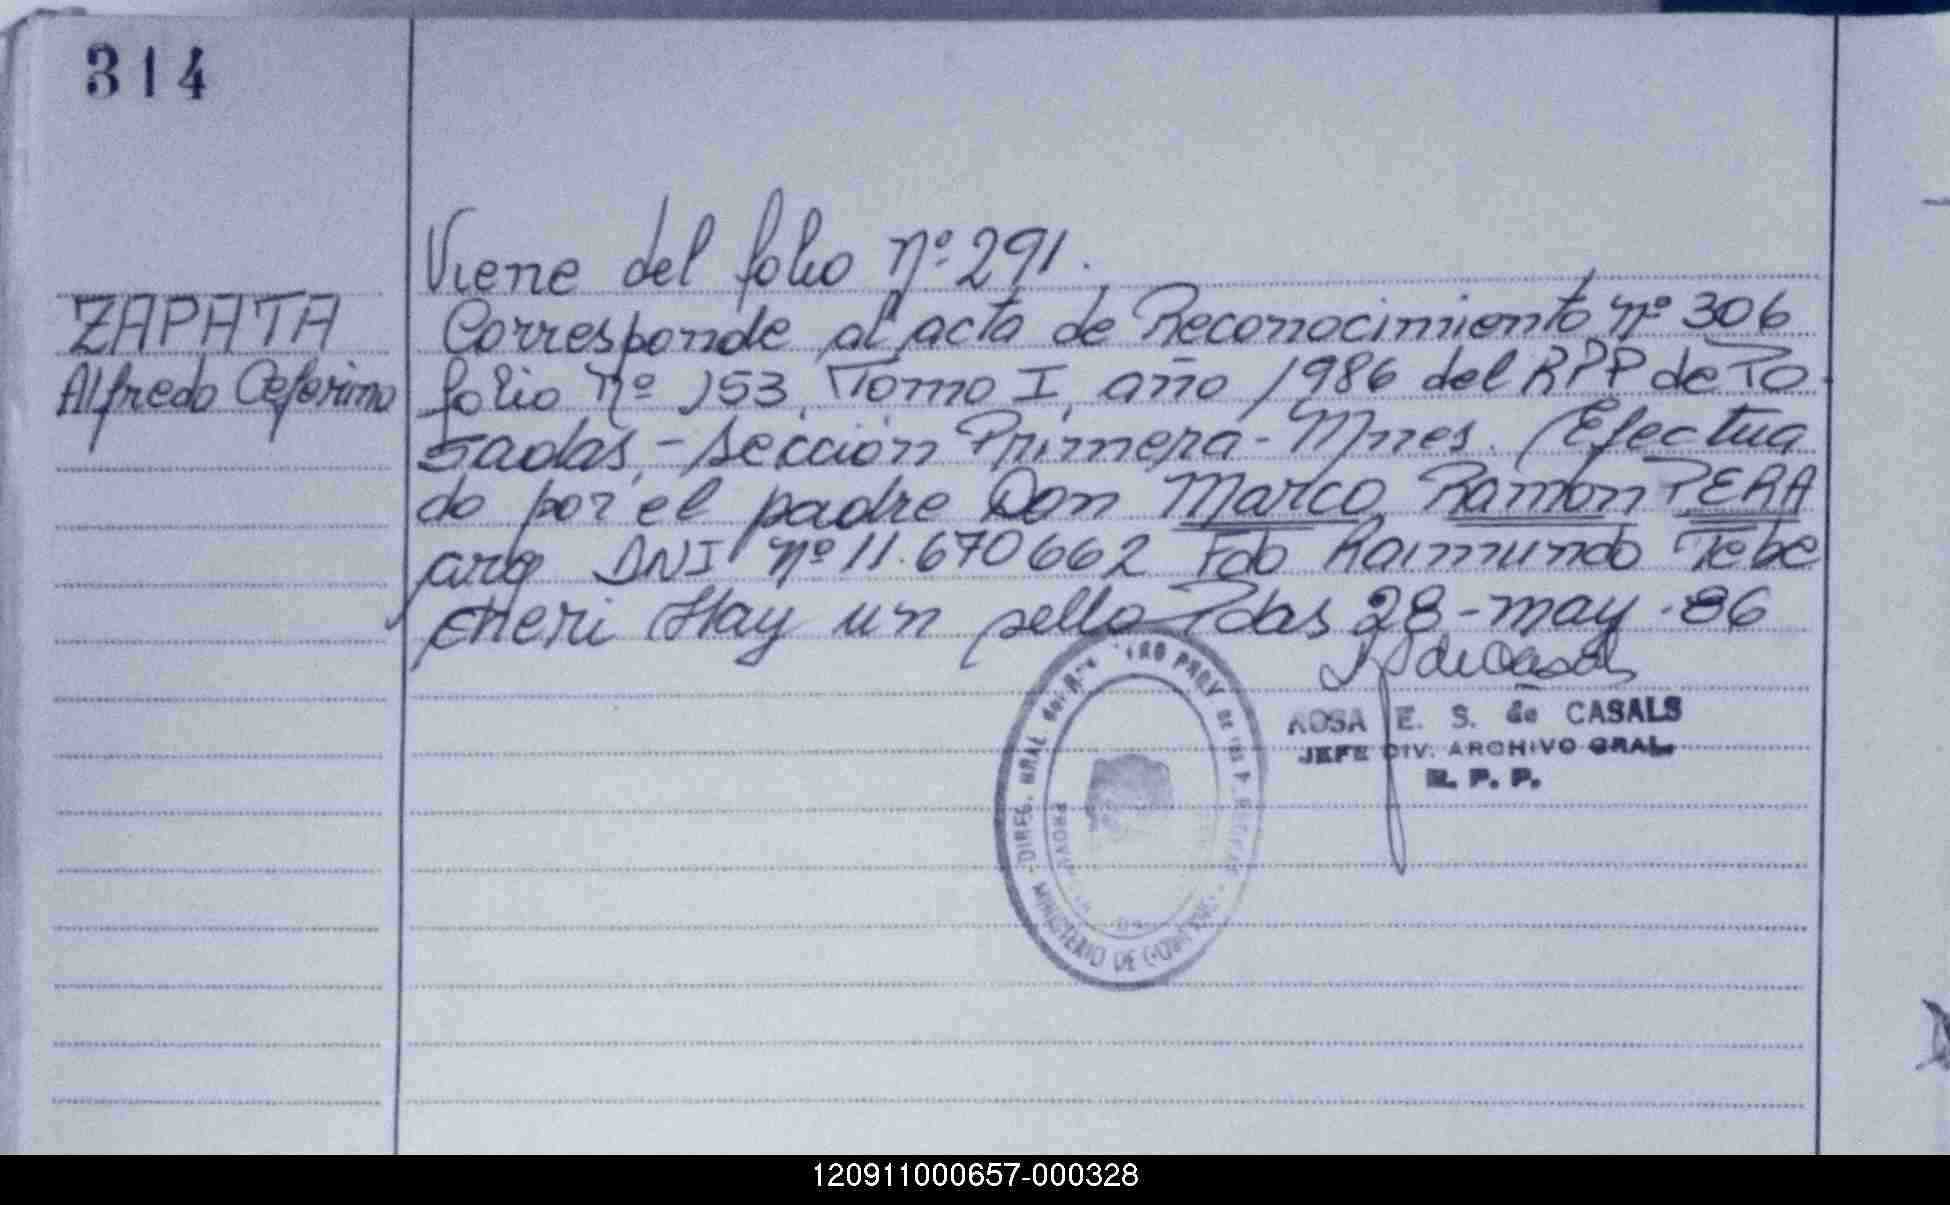 314
Viene del folio nº 291.
ZAPATA
Alfredo Ceferino
Corresponde al acta de Reconocimiento nº 306
folio nº 153, Tomo I, año 1986 del RPP de Po
sadas, - sección Primera - Mnes. Efectua
do por el padre Don Marco Ramon PERA
arg DNI nº 11.670662 Fdo Raimundo Tebe
cheri Hay un sello Pdas 28 - may - 86
ROSA E. S. de CASALS
JEFE DIV. ARCHIVO GRAL.
R. P. P.
DIREC. GRAL. del PROV. de las P.
MINISTERIO DE
120911000657-000328